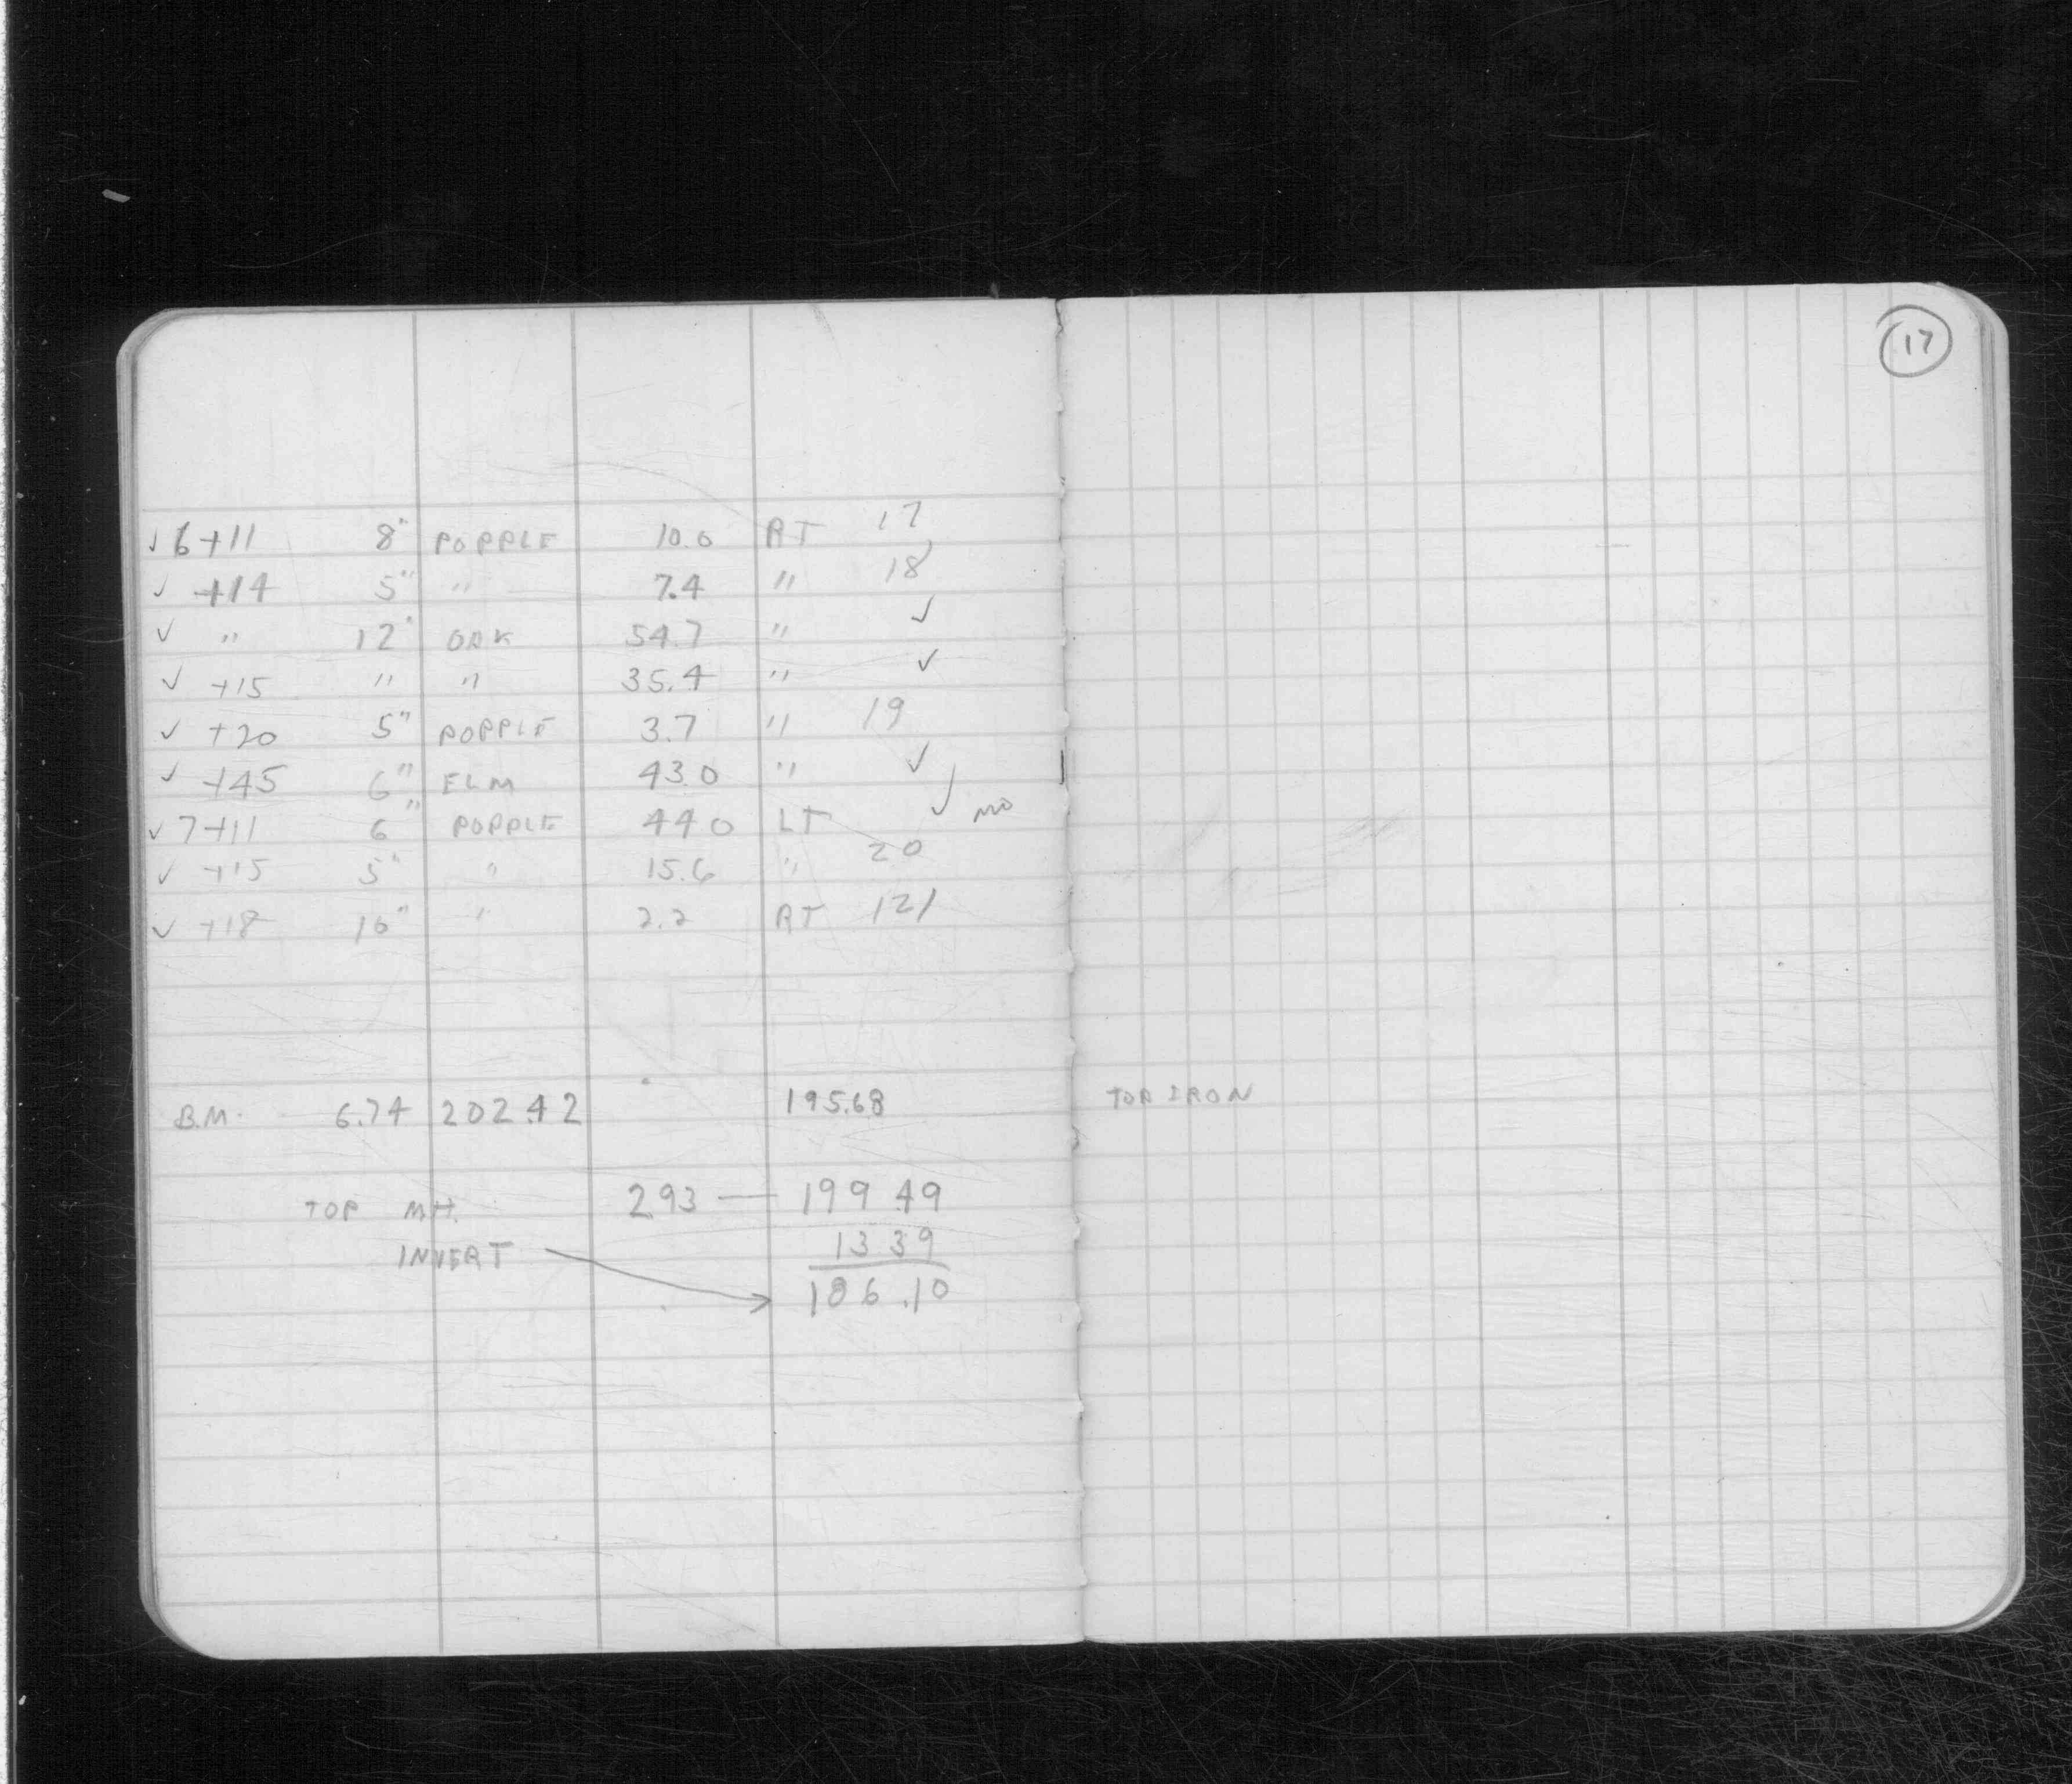 17
✓ 6+11 8" POPPLE 10.0 RT 17
✓ +14 5" " 7.4 " 18
✓ " 12" OAK 54.7 " ✓
✓ +15 " " 35.4 " ✓
✓ +20 5" POPPLE 3.7 " 19
✓ +45 6" ELM 43.0 " ✓
✓ 7+11 6" POPPLE 44.0 LT ✓
✓ +15 5" " 15.6 " 20
✓ +18 16" " 2.2 RT 121
B.M. 6.74 202.42 195.68 TOP IRON
TOP M.H. 2.93 — 199.49
INVERT 13.39
186.10